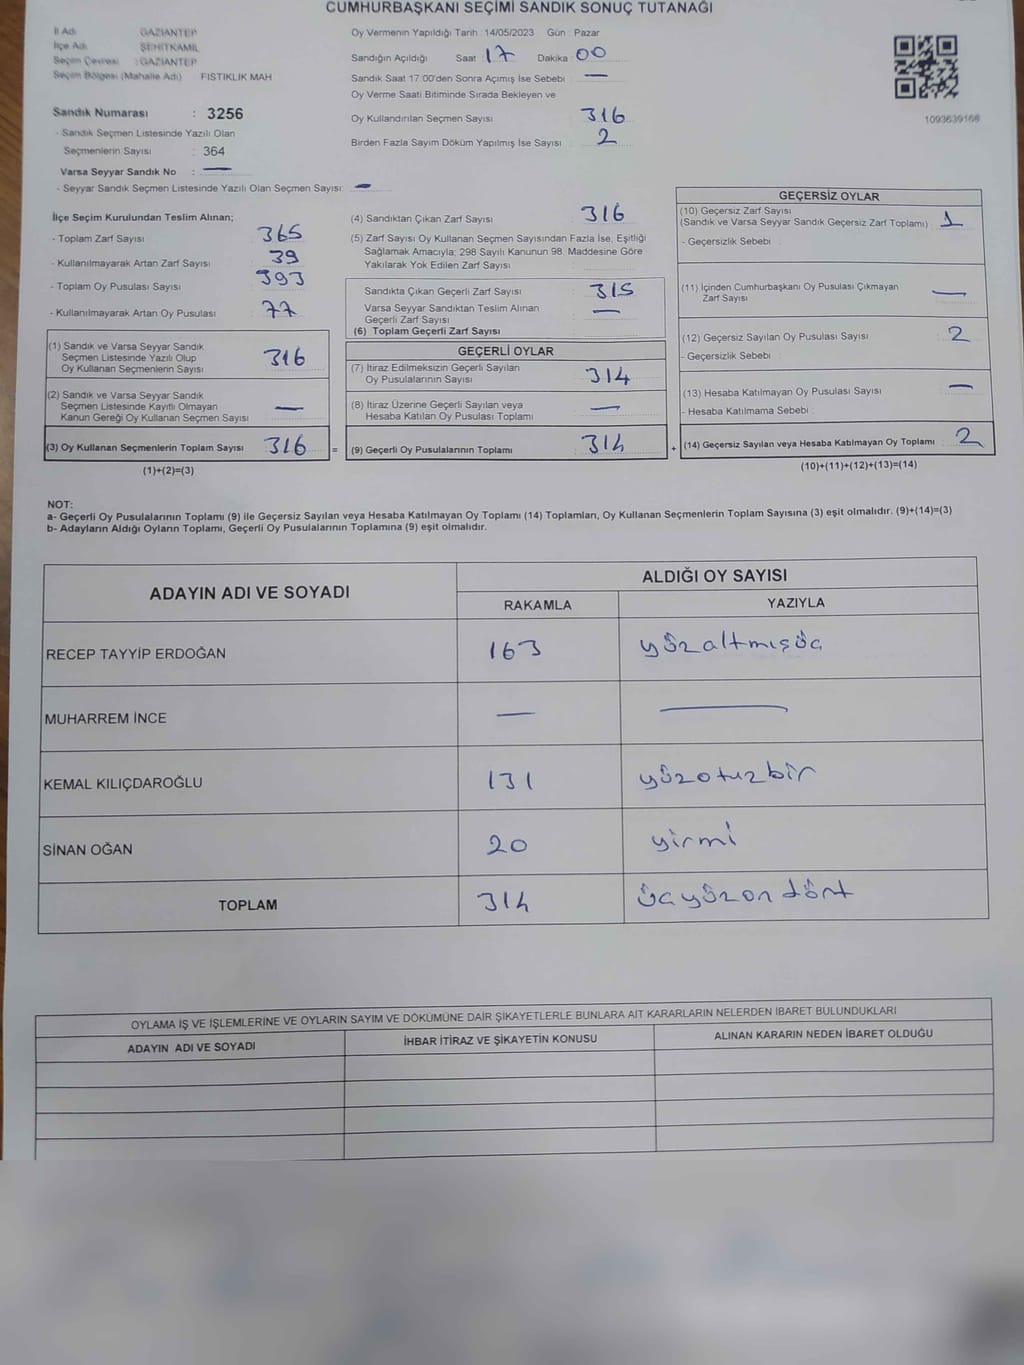 CUMHURBAŞKANI SEÇİMİ SANDIK SONUÇ TUTANAĞI
İl Adı GAZİANTEP
İlçe Adı ŞEHİTKAMİL
Seçim Çevresi : GAZİANTEP
Seçim Bölgesi (Mahalle Adı) FISTIKLIK MAH
Sandık Numarası : 3256
- Sandık Seçmen Listesinde Yazılı Olan
Seçmenlerin Sayısı : 364
Varsa Seyyar Sandık No : —
- Seyyar Sandık Seçmen Listesinde Yazılı Olan Seçmen Sayısı: —
Oy Vermenin Yapıldığı Tarih : 14/05/2023 Gün : Pazar
Sandığın Açıldığı Saat : 17 Dakika : 00
Sandık Saat 17:00'den Sonra Açımış İse Sebebi : —
Oy Verme Saati Bitiminde Sırada Bekleyen ve
Oy Kullandırılan Seçmen Sayısı : 316
Birden Fazla Sayım Döküm Yapılmış İse Sayısı : 2
1093639168
İlçe Seçim Kurulundan Teslim Alınan;
- Toplam Zarf Sayısı : 365
- Kullanılmayarak Artan Zarf Sayısı : 39
- Toplam Oy Pusulası Sayısı : 393
- Kullanılmayarak Artan Oy Pusulası : 77
(1) Sandık ve Varsa Seyyar Sandık
Seçmen Listesinde Yazılı Olup
Oy Kullanan Seçmenlerin Sayısı 316
(2) Sandık ve Varsa Seyyar Sandık
Seçmen Listesinde Kayıtlı Olmayan
Kanun Gereği Oy Kullanan Seçmen Sayısı —
(3) Oy Kullanan Seçmenlerin Toplam Sayısı 316 =
(1)+(2)=(3)
(4) Sandıktan Çıkan Zarf Sayısı : 316
(5) Zarf Sayısı Oy Kullanan Seçmen Sayısından Fazla İse, Eşitliği
Sağlamak Amacıyla; 298 Sayılı Kanunun 98. Maddesine Göre
Yakılarak Yok Edilen Zarf Sayısı :
Sandıkta Çıkan Geçerli Zarf Sayısı : 315
Varsa Seyyar Sandıktan Teslim Alınan
Geçerli Zarf Sayısı : —
(6) Toplam Geçerli Zarf Sayısı
GEÇERLİ OYLAR
(7) İtiraz Edilmeksizin Geçerli Sayılan
Oy Pusulalarının Sayısı : 314
(8) İtiraz Üzerine Geçerli Sayılan veya
Hesaba Katılan Oy Pusulası Toplamı : —
(9) Geçerli Oy Pusulalarının Toplamı : 314 +
GEÇERSİZ OYLAR
(10) Geçersiz Zarf Sayısı
(Sandık ve Varsa Seyyar Sandık Geçersiz Zarf Toplamı) : 1
- Geçersizlik Sebebi :
(11) İçinden Cumhurbaşkanı Oy Pusulası Çıkmayan
Zarf Sayısı : —
(12) Geçersiz Sayılan Oy Pusulası Sayısı : 2
- Geçersizlik Sebebi :
(13) Hesaba Katılmayan Oy Pusulası Sayısı : —
- Hesaba Katılmama Sebebi :
(14) Geçersiz Sayılan veya Hesaba Katılmayan Oy Toplamı : 2
(10)+(11)+(12)+(13)=(14)
NOT:
a- Geçerli Oy Pusulalarının Toplamı (9) ile Geçersiz Sayılan veya Hesaba Katılmayan Oy Toplamı (14) Toplamları, Oy Kullanan Seçmenlerin Toplam Sayısına (3) eşit olmalıdır. (9)+(14)=(3)
b- Adayların Aldığı Oyların Toplamı, Geçerli Oy Pusulalarının Toplamına (9) eşit olmalıdır.
ADAYIN ADI VE SOYADI ALDIĞI OY SAYISI
RAKAMLA YAZIYLA
RECEP TAYYİP ERDOĞAN 163 yüzaltmışüç
MUHARREM İNCE — —
KEMAL KILIÇDAROĞLU 131 yüzotuzbir
SİNAN OĞAN 20 yirmi
TOPLAM 314 üçyüzondört
OYLAMA İŞ VE İŞLEMLERİNE VE OYLARIN SAYIM VE DÖKÜMÜNE DAİR ŞİKAYETLERLE BUNLARA AİT KARARLARIN NELERDEN İBARET BULUNDUKLARI
ADAYIN ADI VE SOYADI İHBAR İTİRAZ VE ŞİKAYETİN KONUSU ALINAN KARARIN NEDEN İBARET OLDUĞU